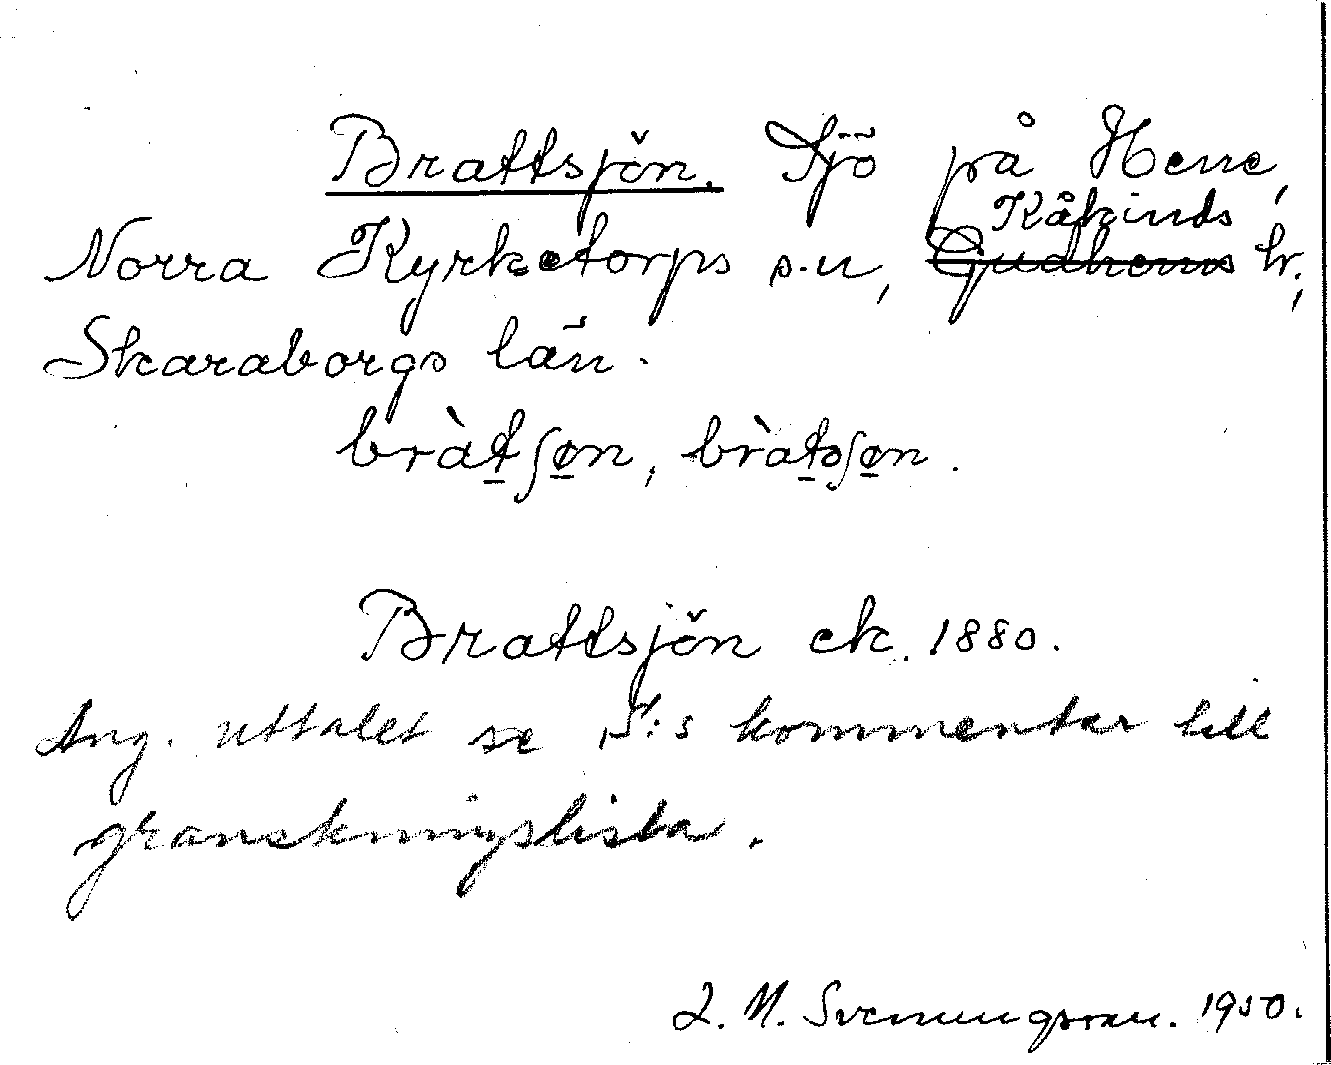 Brattsjön. Sjö på Hene,
Kåkinds
Norra Kyrketorps s:n, Gudhems hr.,
Skaraborgs län.
bràtʃøn, bràtsʃøn.
Brattsjön ek. 1880.
Ang. uttalet se S:s kommentar till
granskningslista.
L. M. Svenungsson. 1950.